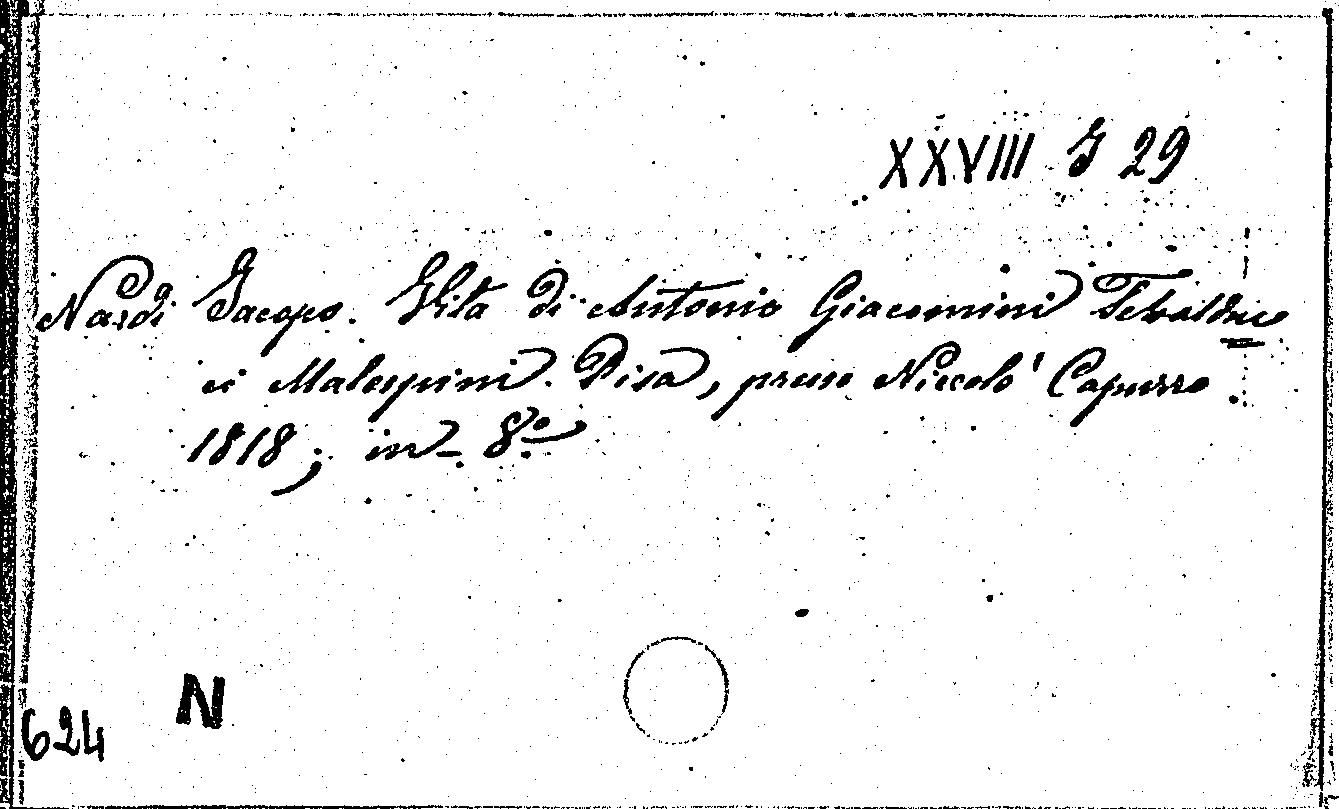 XXVIII J 29
Nardi Jacopo. Vita di Antonio Giacomini Tebalduc=
ci Malespini. Pisa, presso Niccolò Capurro.
1818; in-8º
N
624